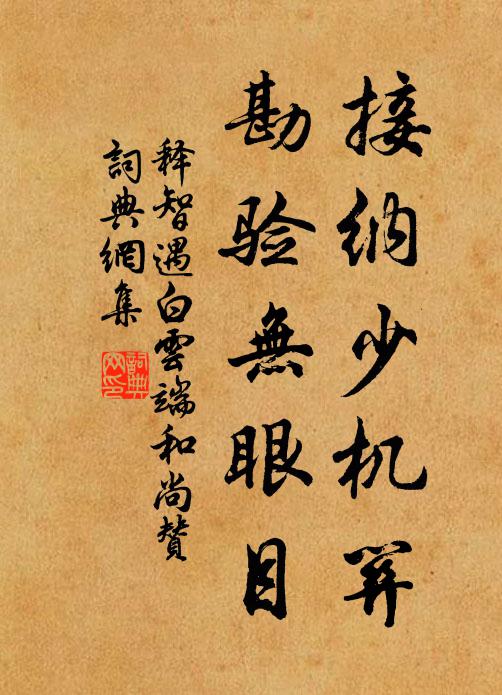 接纳少机关
勘验無眼目
释智遇白雲端和尚賛
詞典網集
詞典
网印